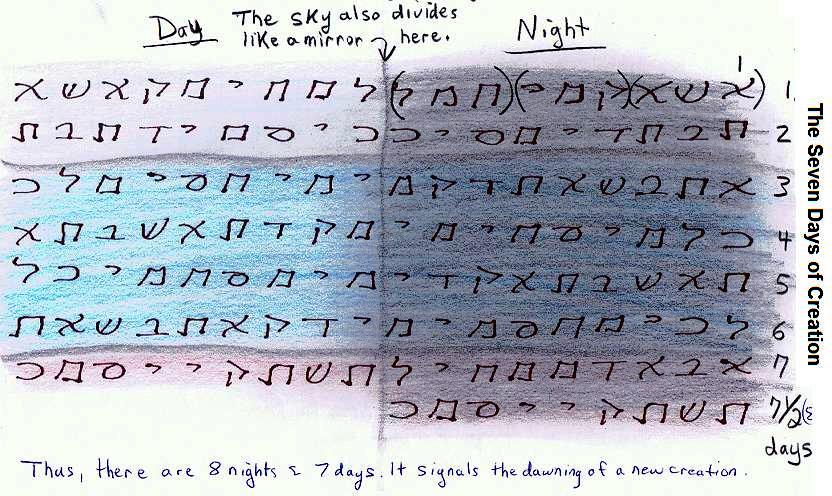 Day
The sky also divides
like a mirror here.
Night
1
1 (א ש א)(ק מ י)(ח מ ל) ל מ ח י מ ק א ש א
2 ת ב ת ד י מ ס י כ כ י ס מ י ד ת ב ת
3 א ת ב ש א ת ד ק מ י מ י ח ס י מ ל כ
4 כ ל מ י ס ח י מ י מ ק ד ת א ש ב ת א
5 ת א ש ב ת א ק ד י מ י מ ס ח מ י כ ל
6 ל כ י מ ח ס מ י מ י ד ק א ת ב ש א ת
7 א ב א ד מ מ ח י ל ת ש ת ק י י ס מ כ
7 1/2 ת ש ת ק י י ס מ כ
days
Thus, there are 8 nights & 7 days. It signals the dawning of a new creation.
The Seven Days of Creation